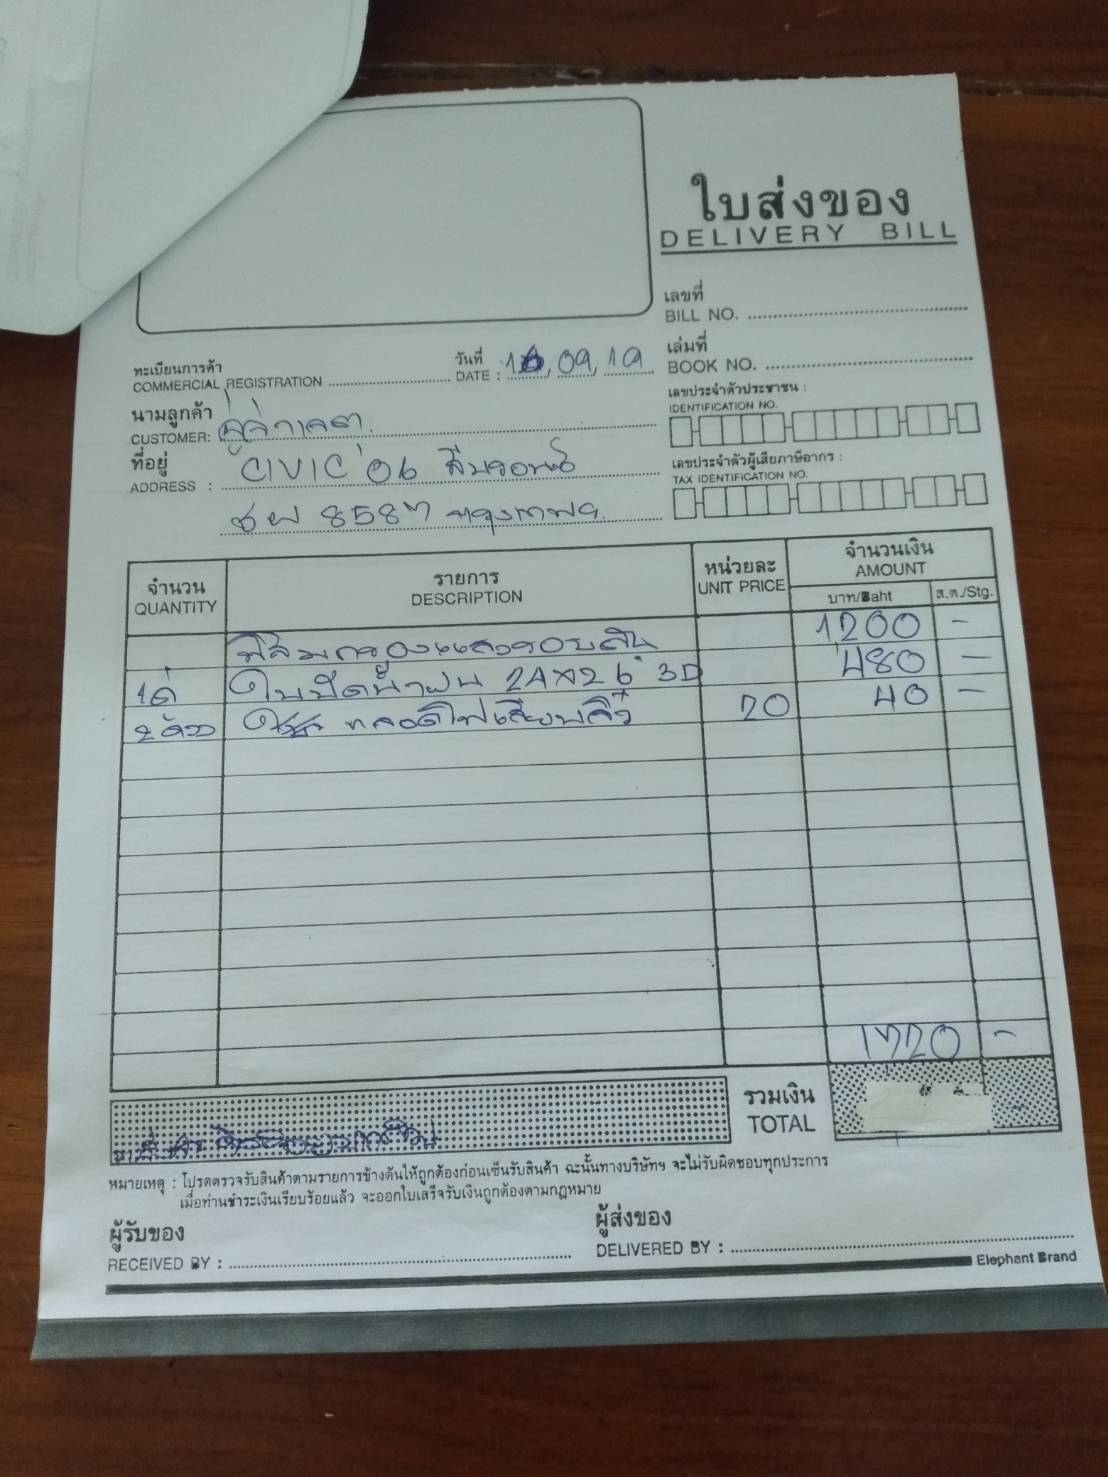 ใบส่งของ
DELIVERY BILL
เลขที่
BILL NO.
ทะเบียนการค้า
COMMERCIAL REGISTRATION
วันที่
DATE : 16, 09, 19
เล่มที่
BOOK NO.
นามลูกค้า
CUSTOMER:
เลขประจำตัวประชาชน :
IDENTIFICATION NO.
ที่อยู่
ADDRESS : CIVIC '06
เลขประจำตัวผู้เสียภาษีอากร :
TAX IDENTIFICATION NO.
8587 กรุงเทพฯ
จำนวน
QUANTITY
รายการ
DESCRIPTION
หน่วยละ
UNIT PRICE
จำนวนเงิน
AMOUNT
บาท/Baht
ส.ต./Stg.
ฟิล์มกรองแสงรอบคัน 1200 -
1คู่ ใบปัดน้ำฝน 24*26 3D 480 -
2ตัว หลอดไฟเสียบ 20 40 -
1720 -
รวมเงิน
TOTAL
หมายเหตุ : โปรดตรวจรับสินค้าตามรายการข้างต้นให้ถูกต้องก่อนเซ็นรับสินค้า ฉะนั้นทางบริษัทฯ จะไม่รับผิดชอบทุกประการ
เมื่อท่านชำระเงินเรียบร้อยแล้ว จะออกใบเสร็จรับเงินถูกต้องตามกฎหมาย
ผู้รับของ
RECEIVED BY :
ผู้ส่งของ
DELIVERED BY :
Elephant Brand